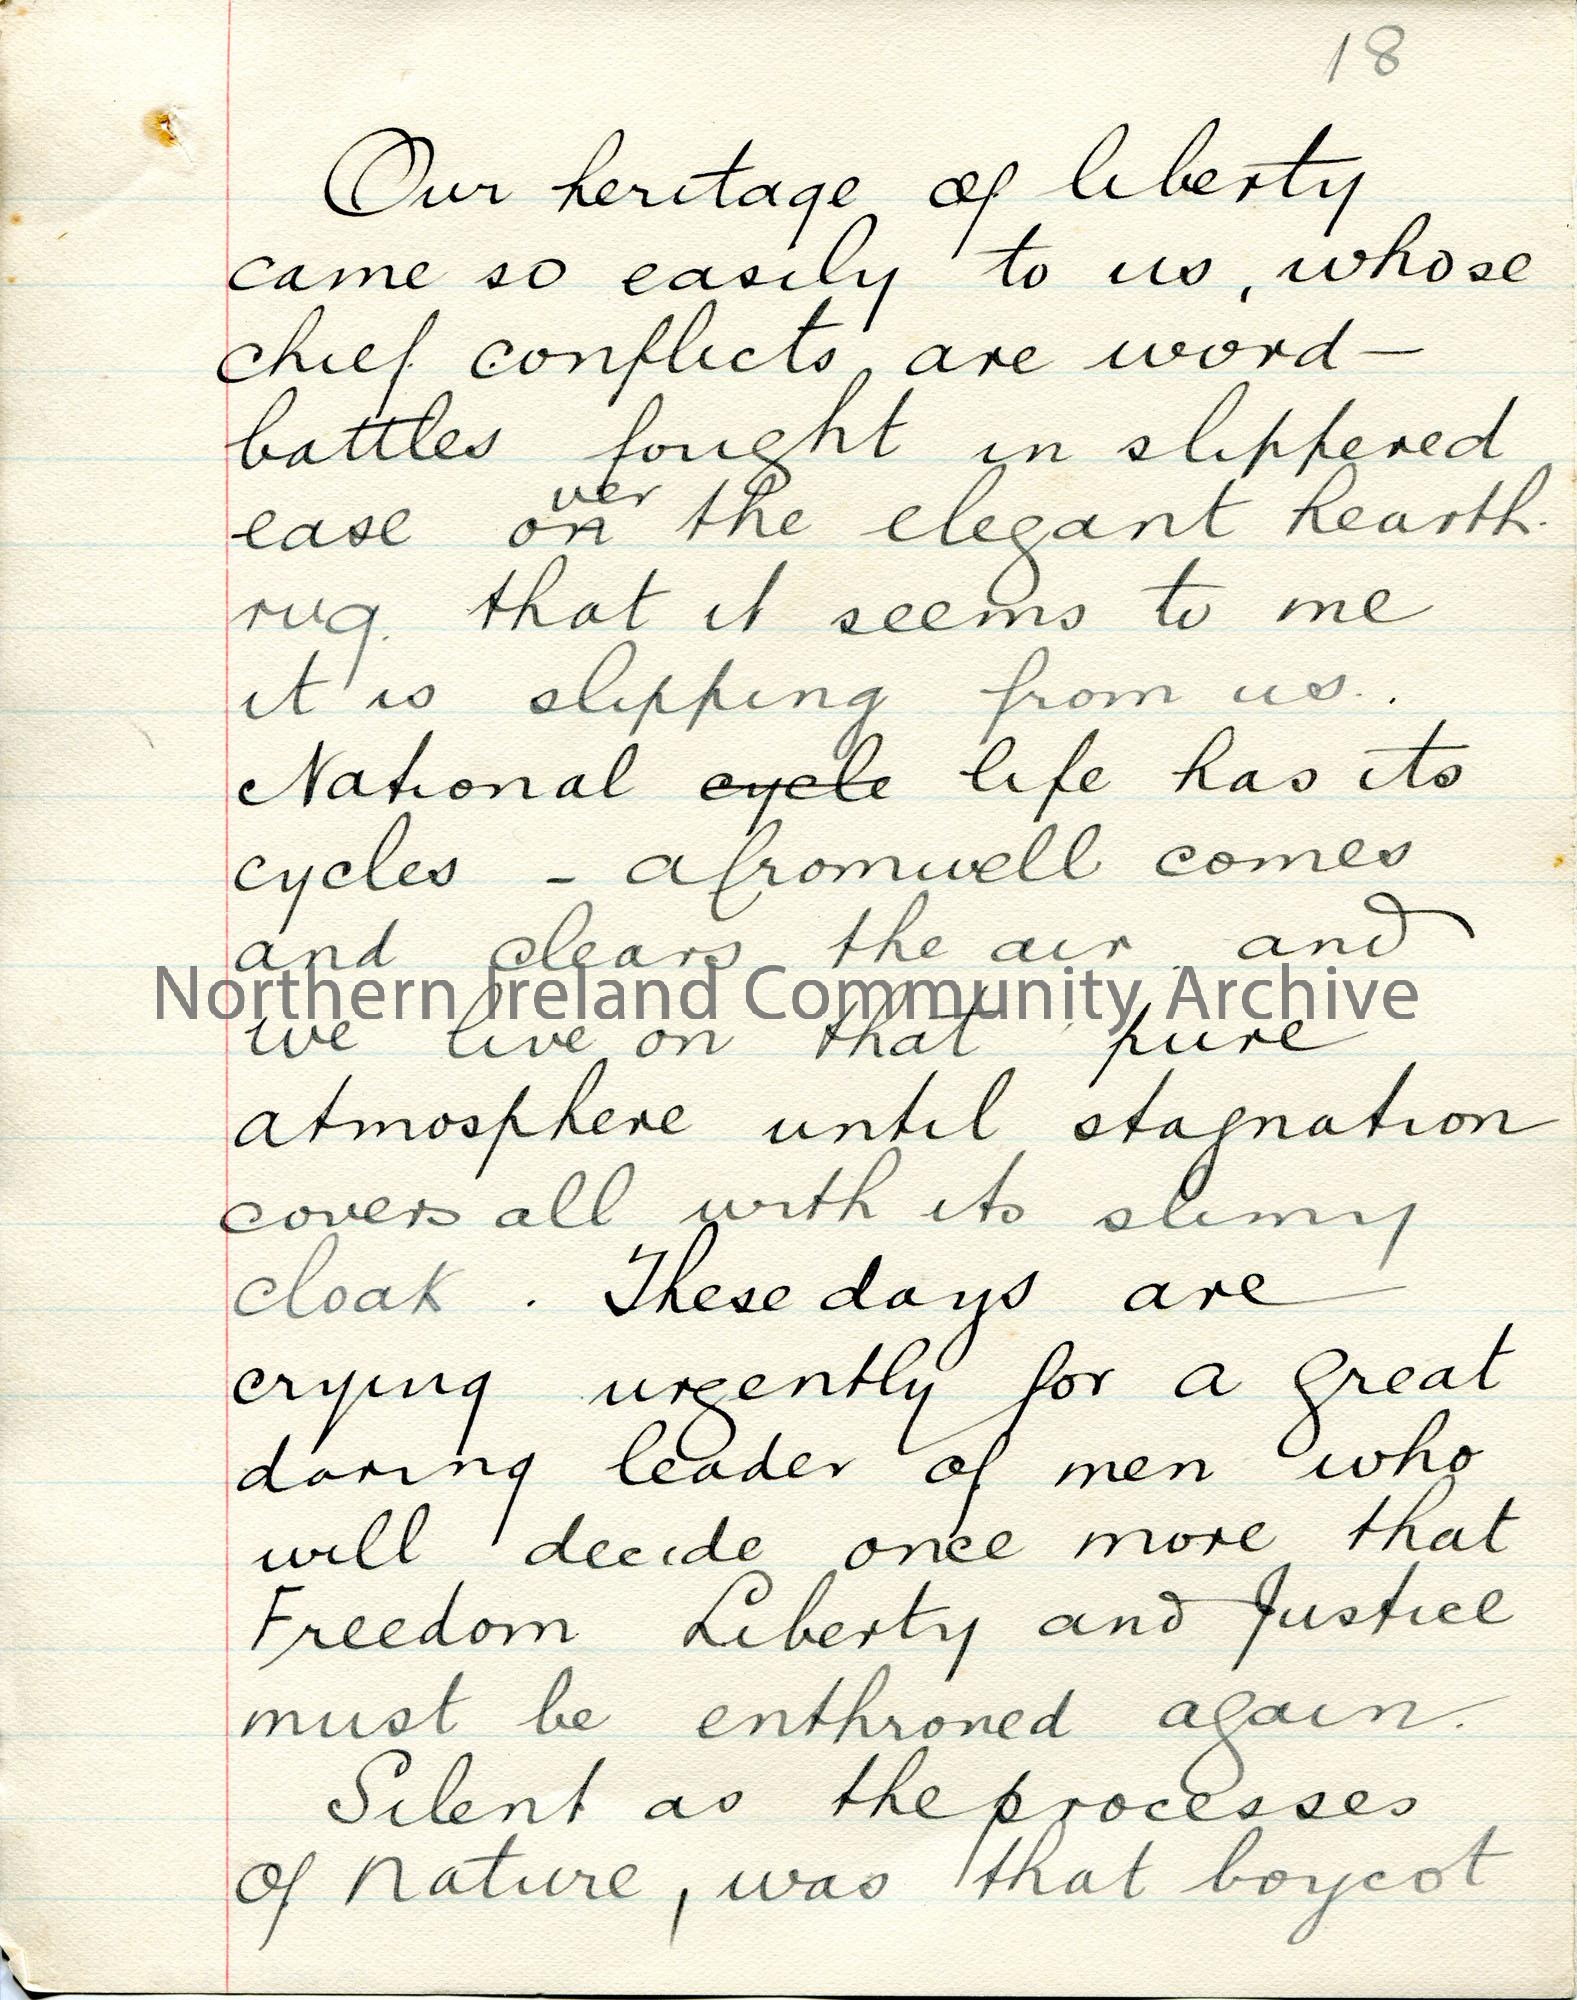 18
Our heritage of liberty
came so easily to us, whose
chief conflicts are word-
battles fought in slippered
ease over the elegant hearth-
rug. that it seems to me
it is slipping from us.
National cycle life has its
cycles - a Cromwell comes
and clears the air and
Northern Ireland Community Archive
we live on that pure
atmosphere until stagnation
covers all with its slimy
cloak. These days are
crying urgently for a great
daring leader of men who
will decide once more that
Freedom Liberty and Justice
must be enthroned again.
Silent as the processes
of nature, was that boycot